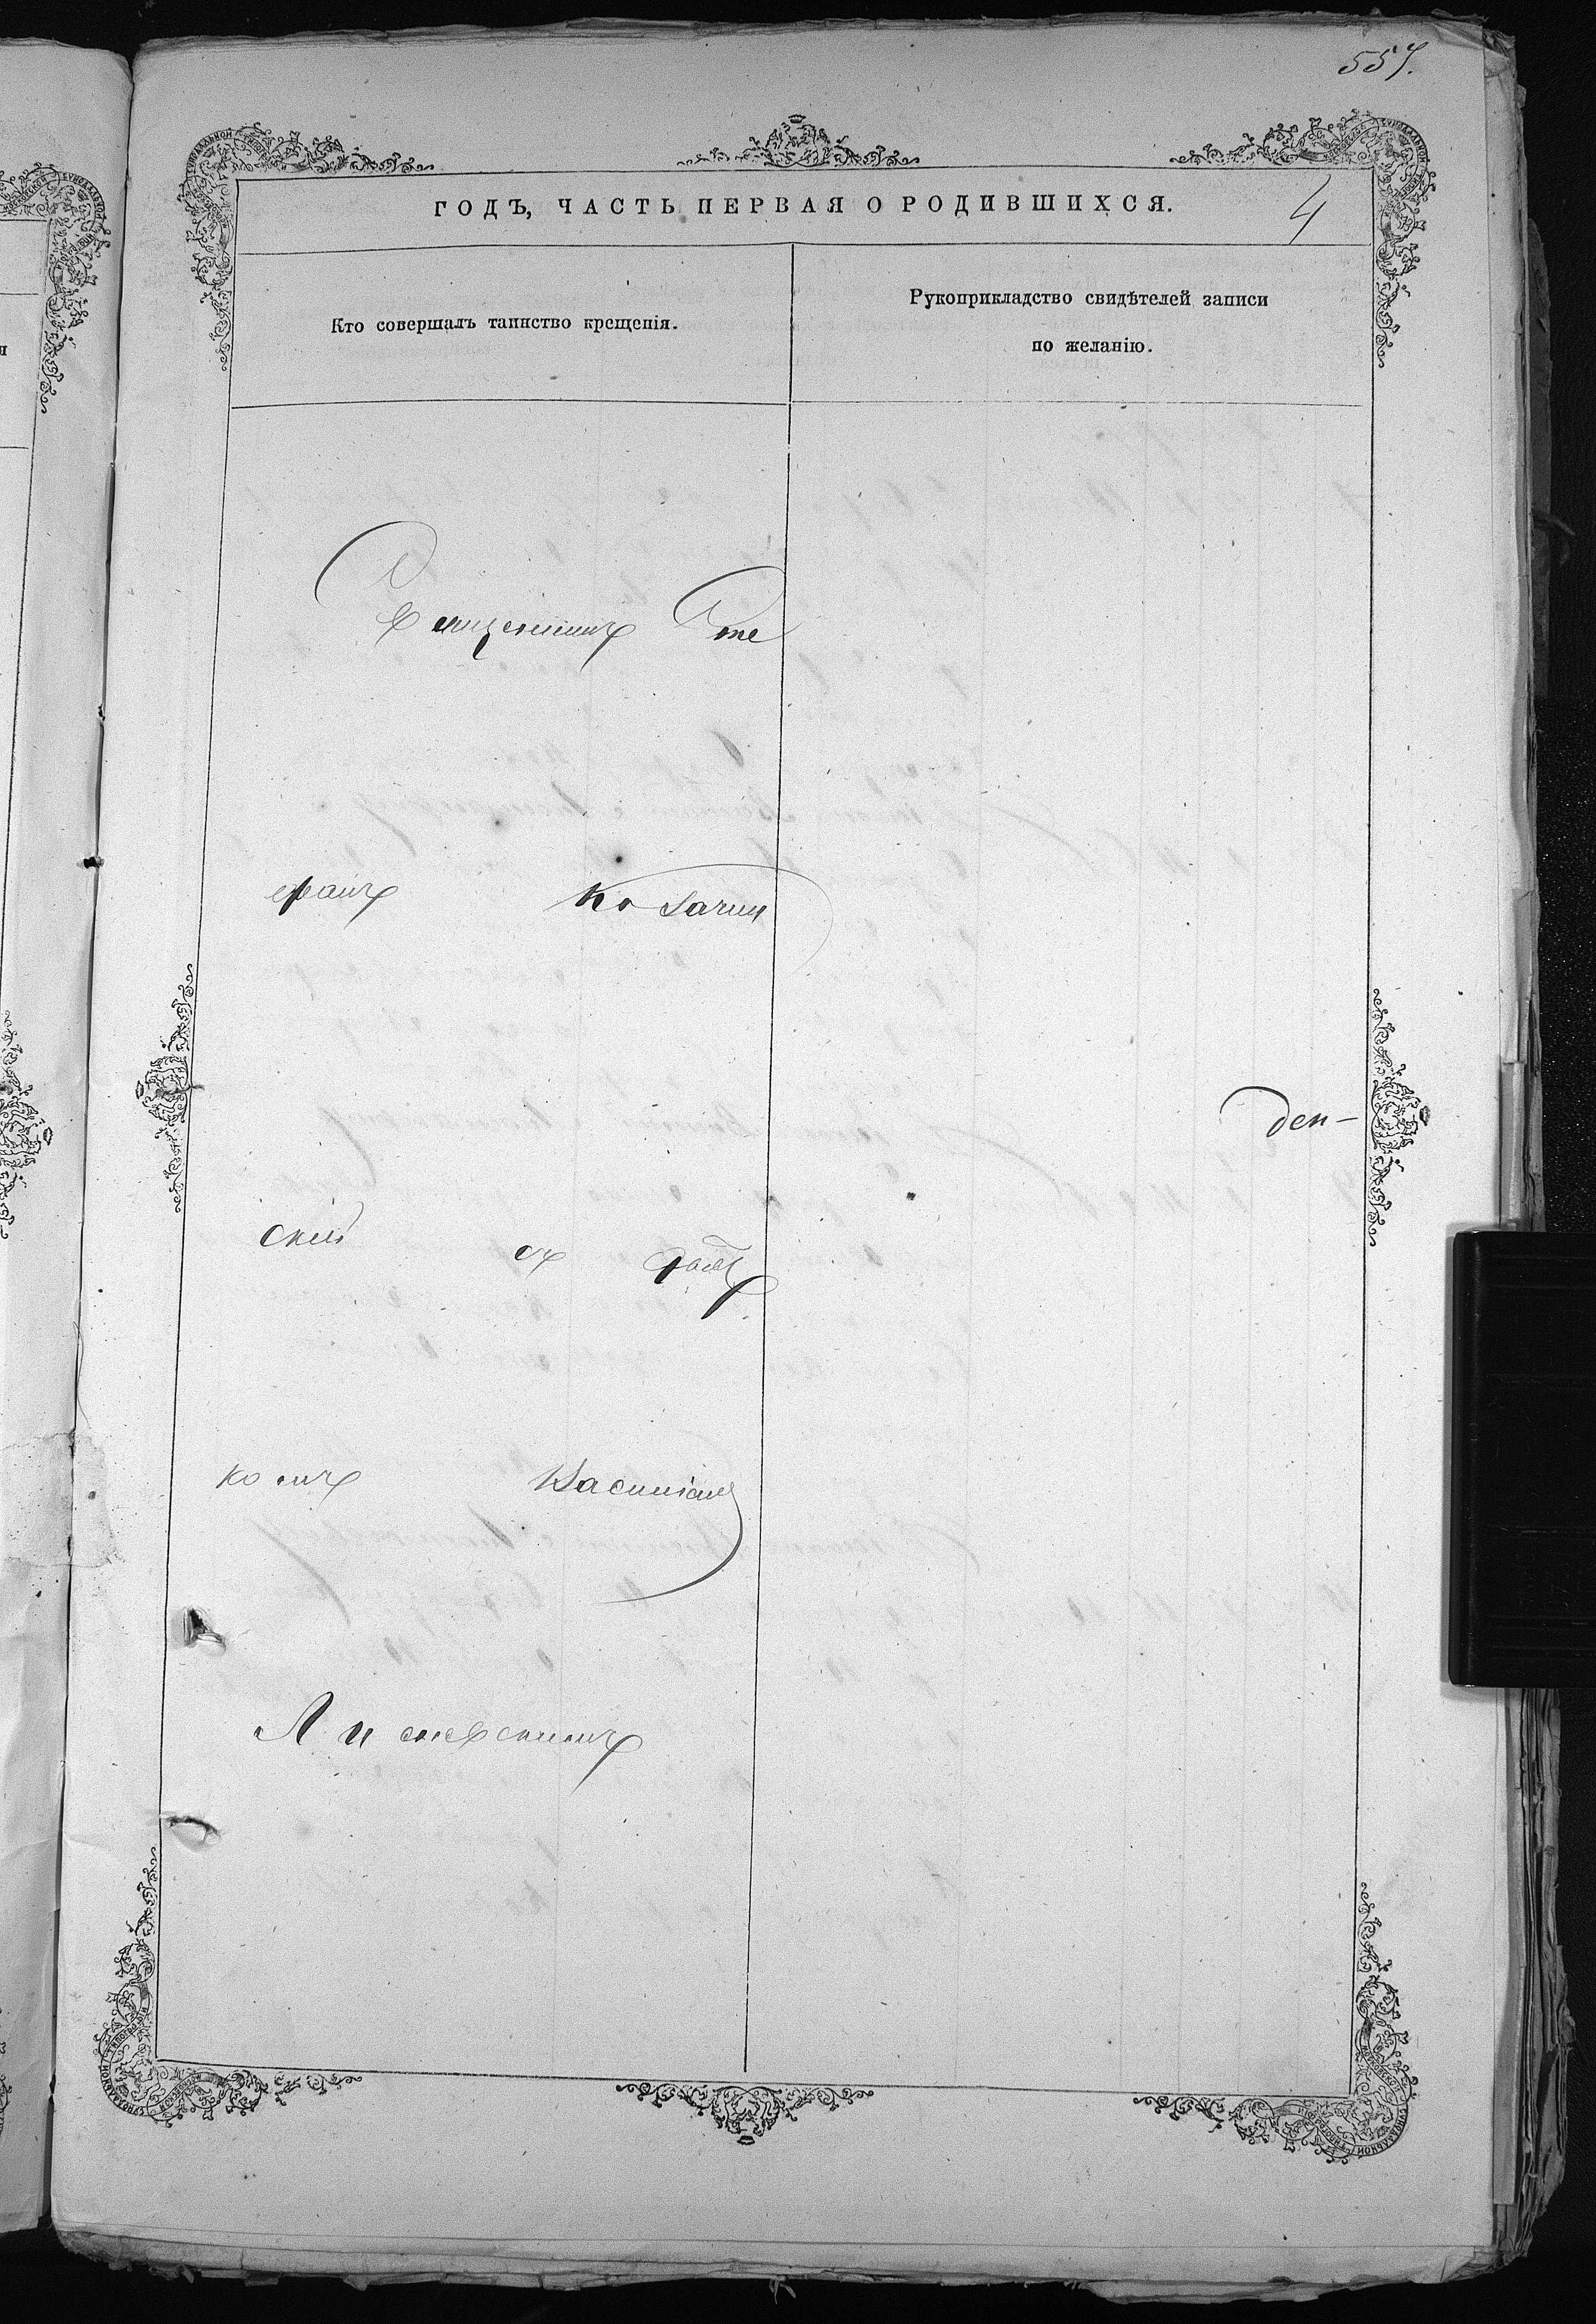 557.
ГОДЪ, ЧАСТЬ ПЕРВАЯ О РОДИВШИХСЯ. 4
Кто совершалъ таинство крещенія.
Рукоприкладство свидѣтелей записи
по желанію.
Священникъ Сте
фанъ Козачин
ден-
скій съ дьяч
комъ Касиіаном
Лисневскимъ